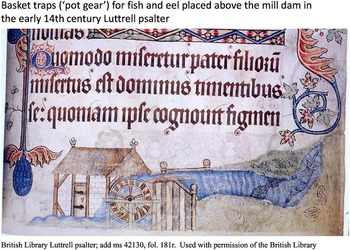 Basket traps (‘pot gear’) for fish and eel placed above the mill dam in
the early 14th century Luttrell psalter
Quomodo miseretur pater filioru
misertus est dominus timentibus
se: quoniam ipse cognouit figmen
British Library Luttrell psalter; add ms 42130, fol. 181r. Used with permission of the British Library